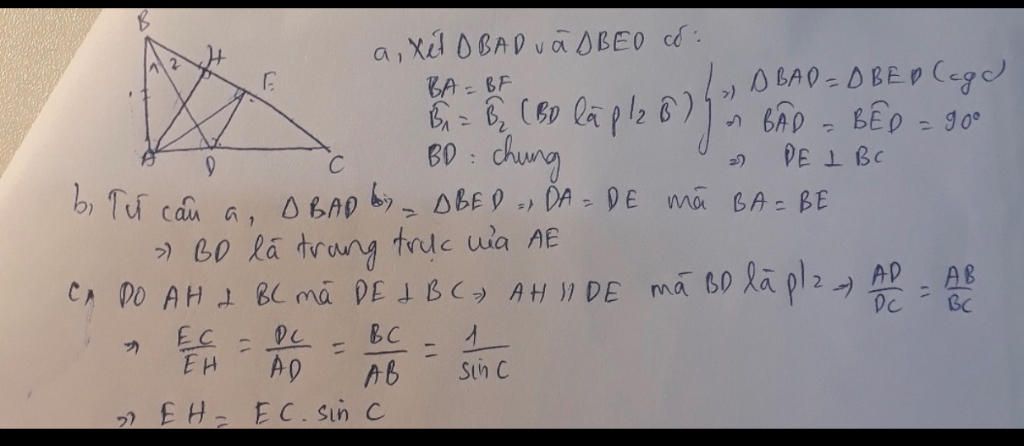 B
1 2 H
E
A D C
a, Xét ΔBAD và ΔBED có:
BA = BE
B̂₁ = B̂₂ (BD là p/2 B̂)
BD : chung
=> ΔBAD = ΔBED (cgc)
=> BÂD = BÊD = 90°
=> DE ⊥ BC
b, Từ câu a, ΔBAD = ΔBED => DA = DE mà BA = BE
=> BD là trung trực của AE
c, Do AH ⊥ BC mà DE ⊥ BC => AH // DE mà BD là p/2 => AD/DC = AB/BC
=> EC/EH = DC/AD = BC/AB = 1/sin C
=> EH = EC . sin C